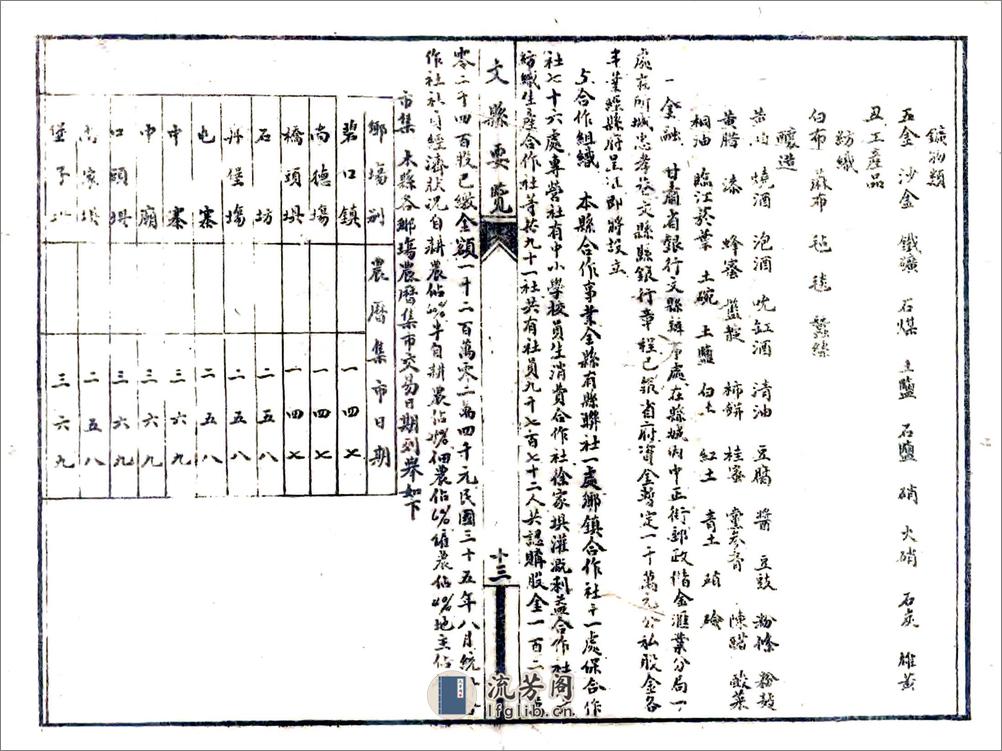 鑛物類
五金 沙金 鐵礦 石煤 土鹽 石鹽 硝 火硝 石炭 雄黃
丑工產品
紡織
白布 蔴布 毡 毯 蠶絲
釀造
黃酒 燒酒 泡酒 咂缸酒 清油 豆腐 醬 豆豉 粉條
黃腊 漆 蜂蜜 藍靛 柿餅 桂蜜 黨參膏 陳醋 酸菜
桐油 臨江菸葉 土碗 土鹽 白土 紅土 青土
一金融 甘肅省銀行文縣辦事處在縣城內中正街郵政儲金滙業分局一
處在附城忠孝 文縣縣銀行章程已報省府資金暫定一千萬元公私股金各
半業縣府呈 即將設立
合作組織 本縣合作事業全縣有縣聯社一處鄉鎮合作社十一處保合作
社七十六處專營社有中小學校員生消費合作社徐家垻灌溉利益合作社
紡織生產合作社等共九十一社共有社員九千七百七十二人共認購股金一百二
零二千四百股已繳金額一十二百萬零二萬四千元民國三十五年八月統
作社社員經濟狀況自耕農佔 半自耕農佔 佃農佔 雇農佔 地主佔
市集 本縣各鄉塲農曆集市交易日期列舉如下
鄉塲別 農曆集市日期
碧口鎮 一四七
尚德塲 一四七
橋頭垻 一四七
石坊 二五八
丹堡塲 二五八
屯寨 二五八
中寨 三六九
中廟 三六九
口頭垻 三六九
家垻 二五八
堡子 三六九
文縣要覽
十三
流芳阁
lfglib.cn